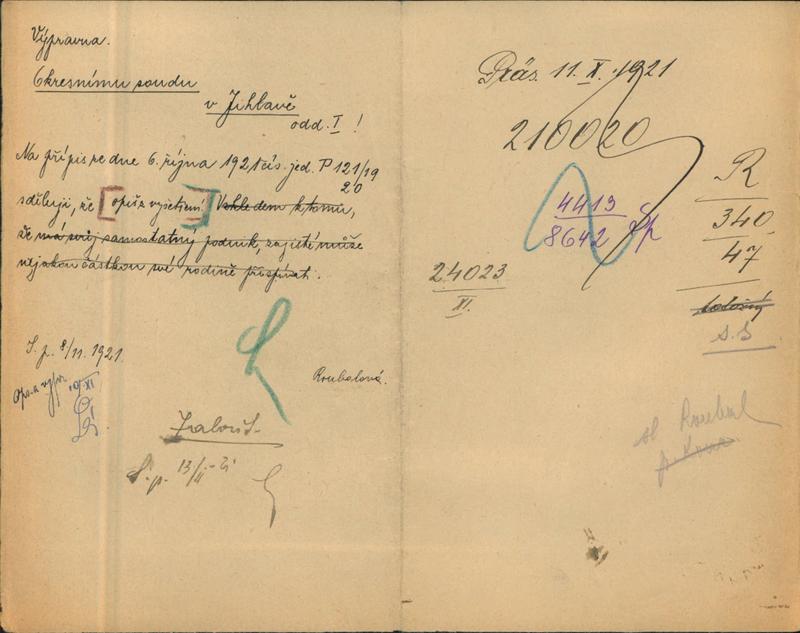 Výpravna.
Okresnímu soudu
v Jihlavě
odd. I !
Na přípis ze dne 6. října 1921 čís. jed. P 121/19
20
sděluji, že [opis z vyšetření] Vzhledem k tomu,
že má svůj samostatný podnik, zajisté může
nějakou částkou své rodině přispívat.
S. p. 8/11. 1921.
Roubalová.
Praes. 11. X. 1921
210020
4419
8642 čp
24023
XI.
R
340
47
S. p. 13/II
Roubal